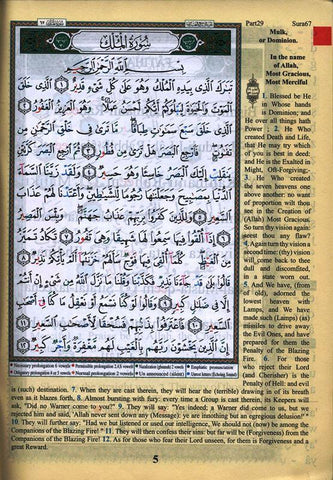 Part29 Sura67
Mulk,
or Dominion.
سُورَةُ الْمُلْكِ
بِسْمِ اللَّهِ الرَّحْمَٰنِ الرَّحِيمِ
تَبَٰرَكَ الَّذِي بِيَدِهِ الْمُلْكُ وَهُوَ عَلَىٰ كُلِّ شَيْءٍ قَدِيرٌ ١ الَّذِي خَلَقَ
الْمَوْتَ وَالْحَيَوٰةَ لِيَبْلُوَكُمْ أَيُّكُمْ أَحْسَنُ عَمَلًا وَهُوَ الْعَزِيزُ الْغَفُورُ ٢
الَّذِي خَلَقَ سَبْعَ سَمَٰوَٰتٍ طِبَاقًا مَّا تَرَىٰ فِي خَلْقِ الرَّحْمَٰنِ مِن
تَفَٰوُتٍ فَارْجِعِ الْبَصَرَ هَلْ تَرَىٰ مِن فُطُورٍ ٣ ثُمَّ ارْجِعِ الْبَصَرَ كَرَّتَيْنِ
يَنقَلِبْ إِلَيْكَ الْبَصَرُ خَاسِئًا وَهُوَ حَسِيرٌ ٤ وَلَقَدْ زَيَّنَّا السَّمَاءَ
الدُّنْيَا بِمَصَٰبِيحَ وَجَعَلْنَٰهَا رُجُومًا لِّلشَّيَٰطِينِ وَأَعْتَدْنَا لَهُمْ عَذَابَ
السَّعِيرِ ٥ وَلِلَّذِينَ كَفَرُوا بِرَبِّهِمْ عَذَابُ جَهَنَّمَ وَبِئْسَ الْمَصِيرُ ٦
إِذَا أُلْقُوا فِيهَا سَمِعُوا لَهَا شَهِيقًا وَهِيَ تَفُورُ ٧ تَكَادُ تَمَيَّزُ
مِنَ الْغَيْظِ كُلَّمَا أُلْقِيَ فِيهَا فَوْجٌ سَأَلَهُمْ خَزَنَتُهَا أَلَمْ يَأْتِكُمْ نَذِيرٌ ٨
قَالُوا بَلَىٰ قَدْ جَاءَنَا نَذِيرٌ فَكَذَّبْنَا وَقُلْنَا مَا نَزَّلَ اللَّهُ مِن شَيْءٍ إِنْ أَنتُمْ
إِلَّا فِي ضَلَٰلٍ كَبِيرٍ ٩ وَقَالُوا لَوْ كُنَّا نَسْمَعُ أَوْ نَعْقِلُ مَا كُنَّا فِي أَصْحَٰبِ
السَّعِيرِ ١٠ فَاعْتَرَفُوا بِذَنبِهِمْ فَسُحْقًا لِّأَصْحَٰبِ السَّعِيرِ ١١
إِنَّ الَّذِينَ يَخْشَوْنَ رَبَّهُم بِالْغَيْبِ لَهُم مَّغْفِرَةٌ وَأَجْرٌ كَبِيرٌ ١٢
In the name
of Allah,
Most Gracious,
Most Merciful
1. Blessed be He
in Whose hands
is Dominion; and
He over all things hath
Power ; 2. He Who
created Death and Life,
that He may try which
of you is best in deed:
and He is the Exalted in
Might, Oft-Forgiving;
3. He Who created
the seven heavens one
above another: no want
of proportion wilt thou
see in the Creation of
(Allah) Most Gracious.
So turn thy vision again:
seest thou any flaw?
4. Again turn thy vision a
second time: (thy) vision
will come back to thee
dull and discomfited,
in a state worn out.
5. And we have, (from
of old), adorned the
lowest heaven with
Lamps, and We have
made such (Lamps) (as)
missiles to drive away
the Evil Ones, and have
prepared for them the
Penalty of the Blazing
Fire. 6. For those
who reject their Lord
(and Cherisher) is the
Penalty of Hell: and evil
is (such) destination. 7. When they are cast therein, they will hear the (terrible) drawing in of its breath
even as it blazes forth, 8. Almost bursting with fury: every time a Group is cast therein, its Keepers will
ask, "Did no Warner come to you?" 9. They will say: "Yes indeed; a Warner did come to us, but we
rejected him and said, 'Allah never sent down any (Message): ye are in nothing but an egregious delusion!'"
10. They will further say: "Had we but listened or used our intelligence, We should not (now) be among the
Companions of the Blazing Fire!" 11. They will then confess their sins: but far will be (Forgiveness) from the
Companions of the Blazing Fire! 12. As for those who fear their Lord unseen, for them is Forgiveness and a
great Reward.
5